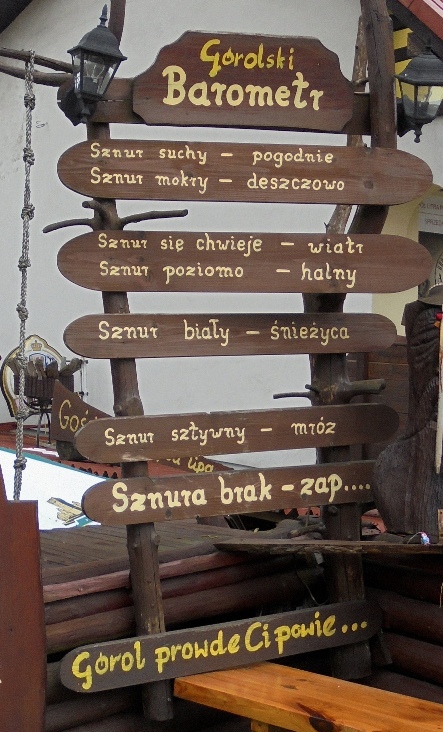 Górolski
Barometr
Sznur suchy – pogodnie
Sznur mokry – deszczowo
Sznur się chwieje – wiatr
Sznur poziomo – halny
Sznur biały – śnieżyca
Sznur sztywny – mróz
Sznura brak – zap....
Górol prowde Ci powie...
Goś
lipa